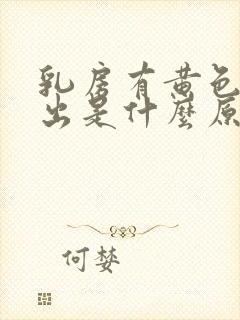 乳房有黄色
出是什麼原
何婪